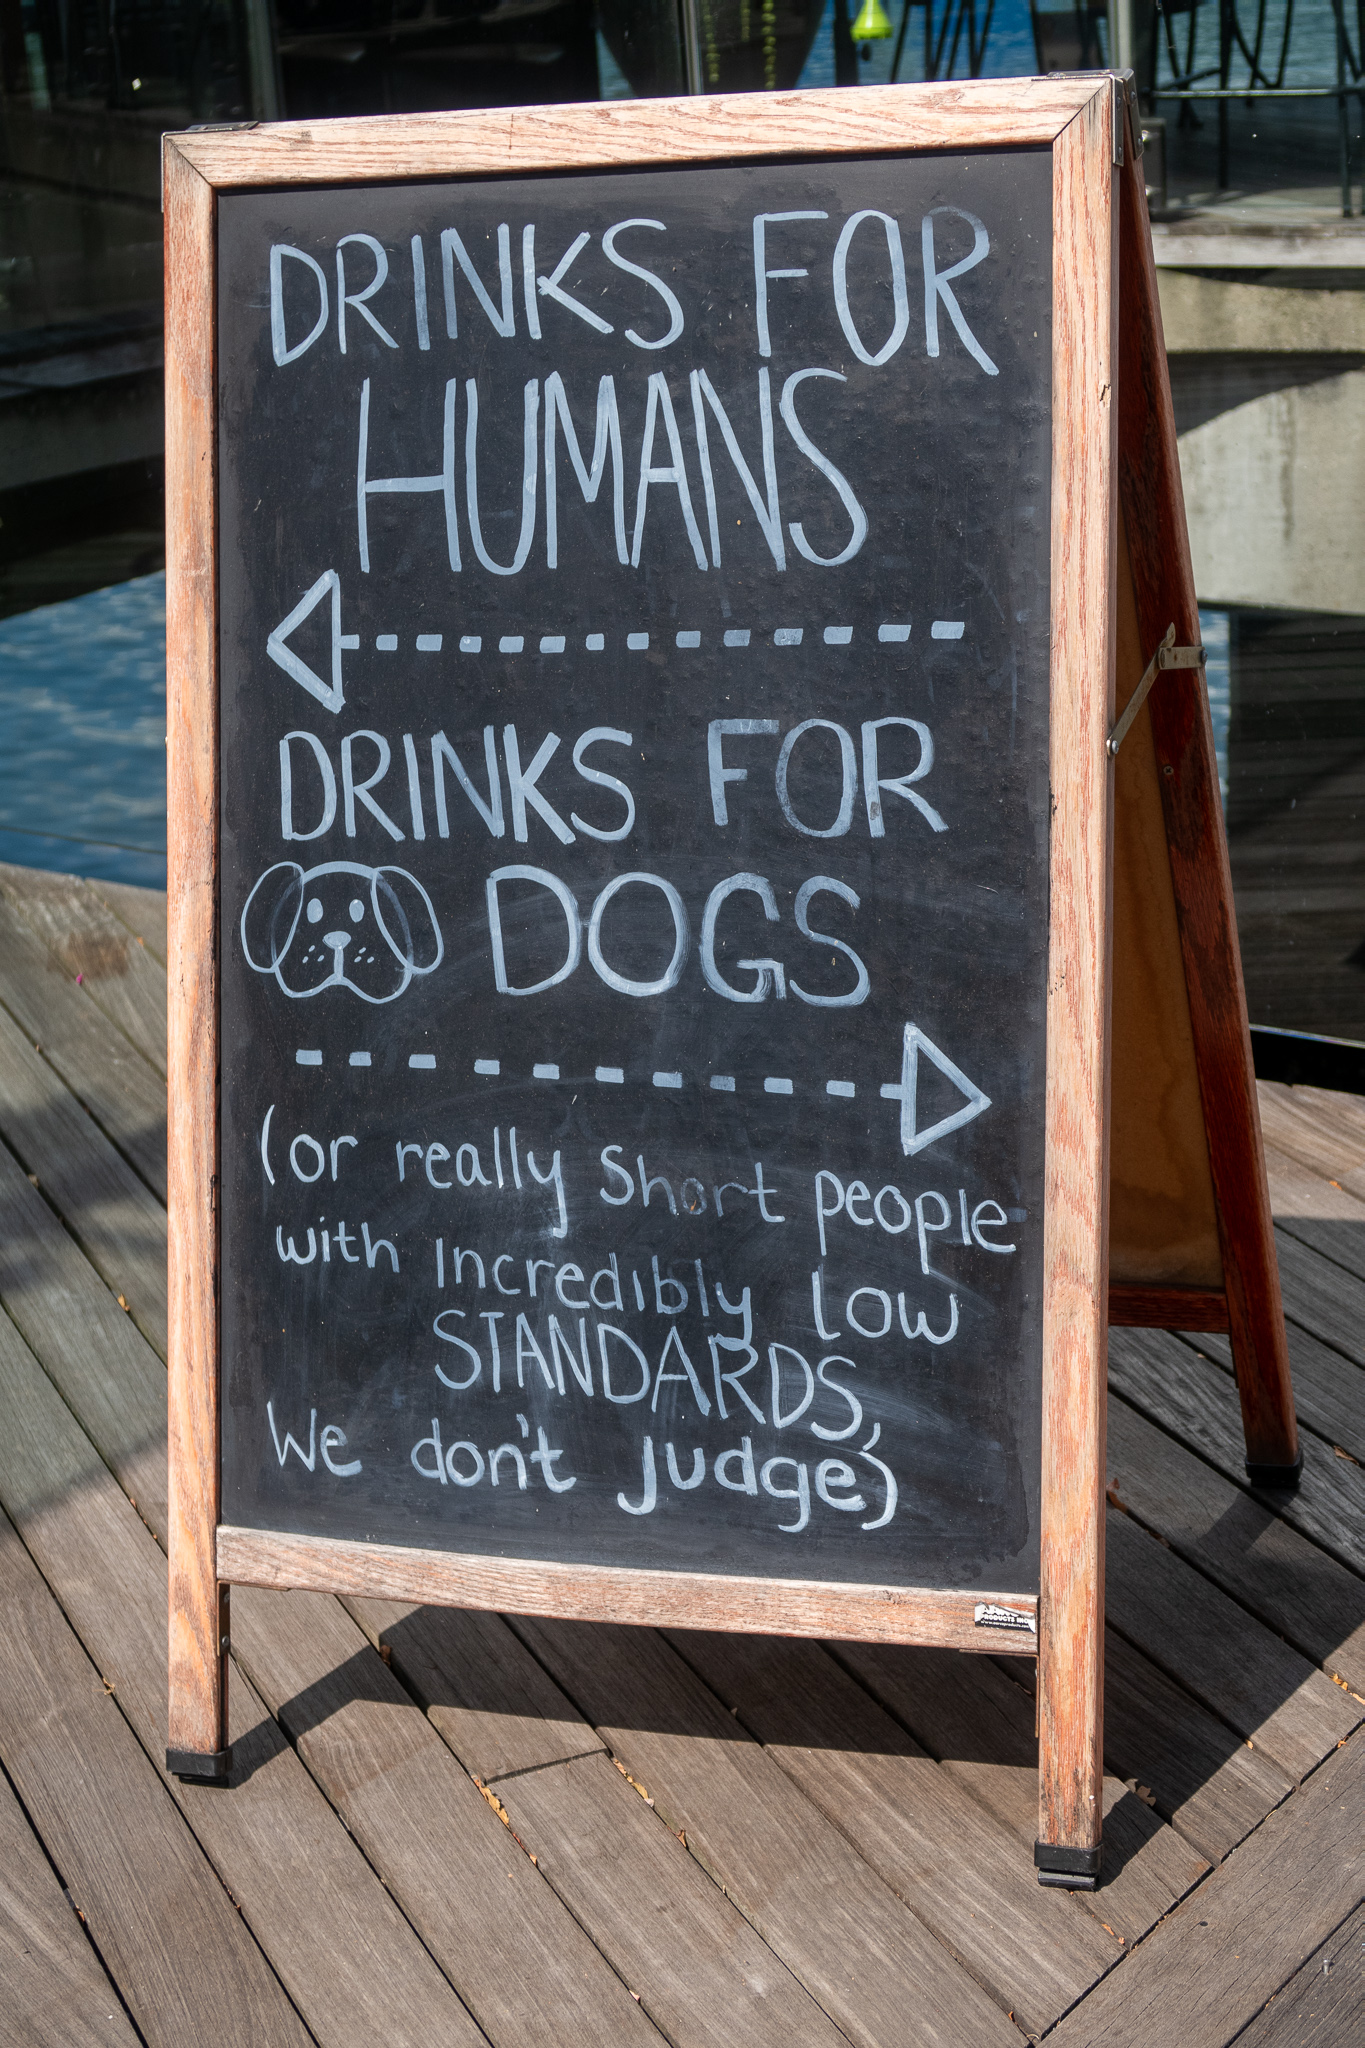 DRINKS FOR
HUMANS
DRINKS FOR
DOGS
(or really Short people
with Incredibly low
STANDARDS,
We don't judge)
PRODUCTS INC